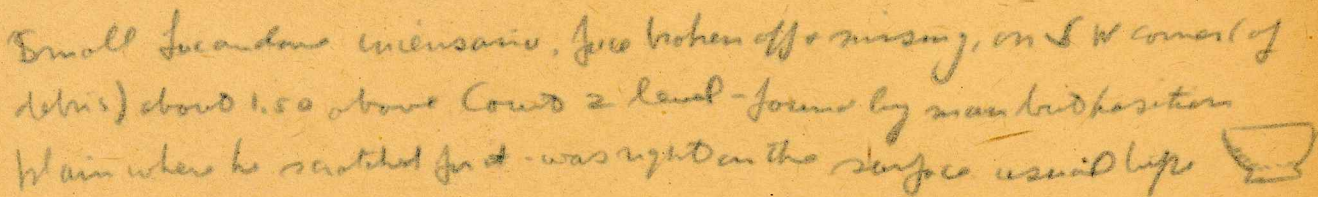 Small Lacandone incensario, face broken off & missing, on SW corner (of
debris) about 1.50 above Court 2 level - found by man but position
plain where he scratched for it - was right on the surface usual type